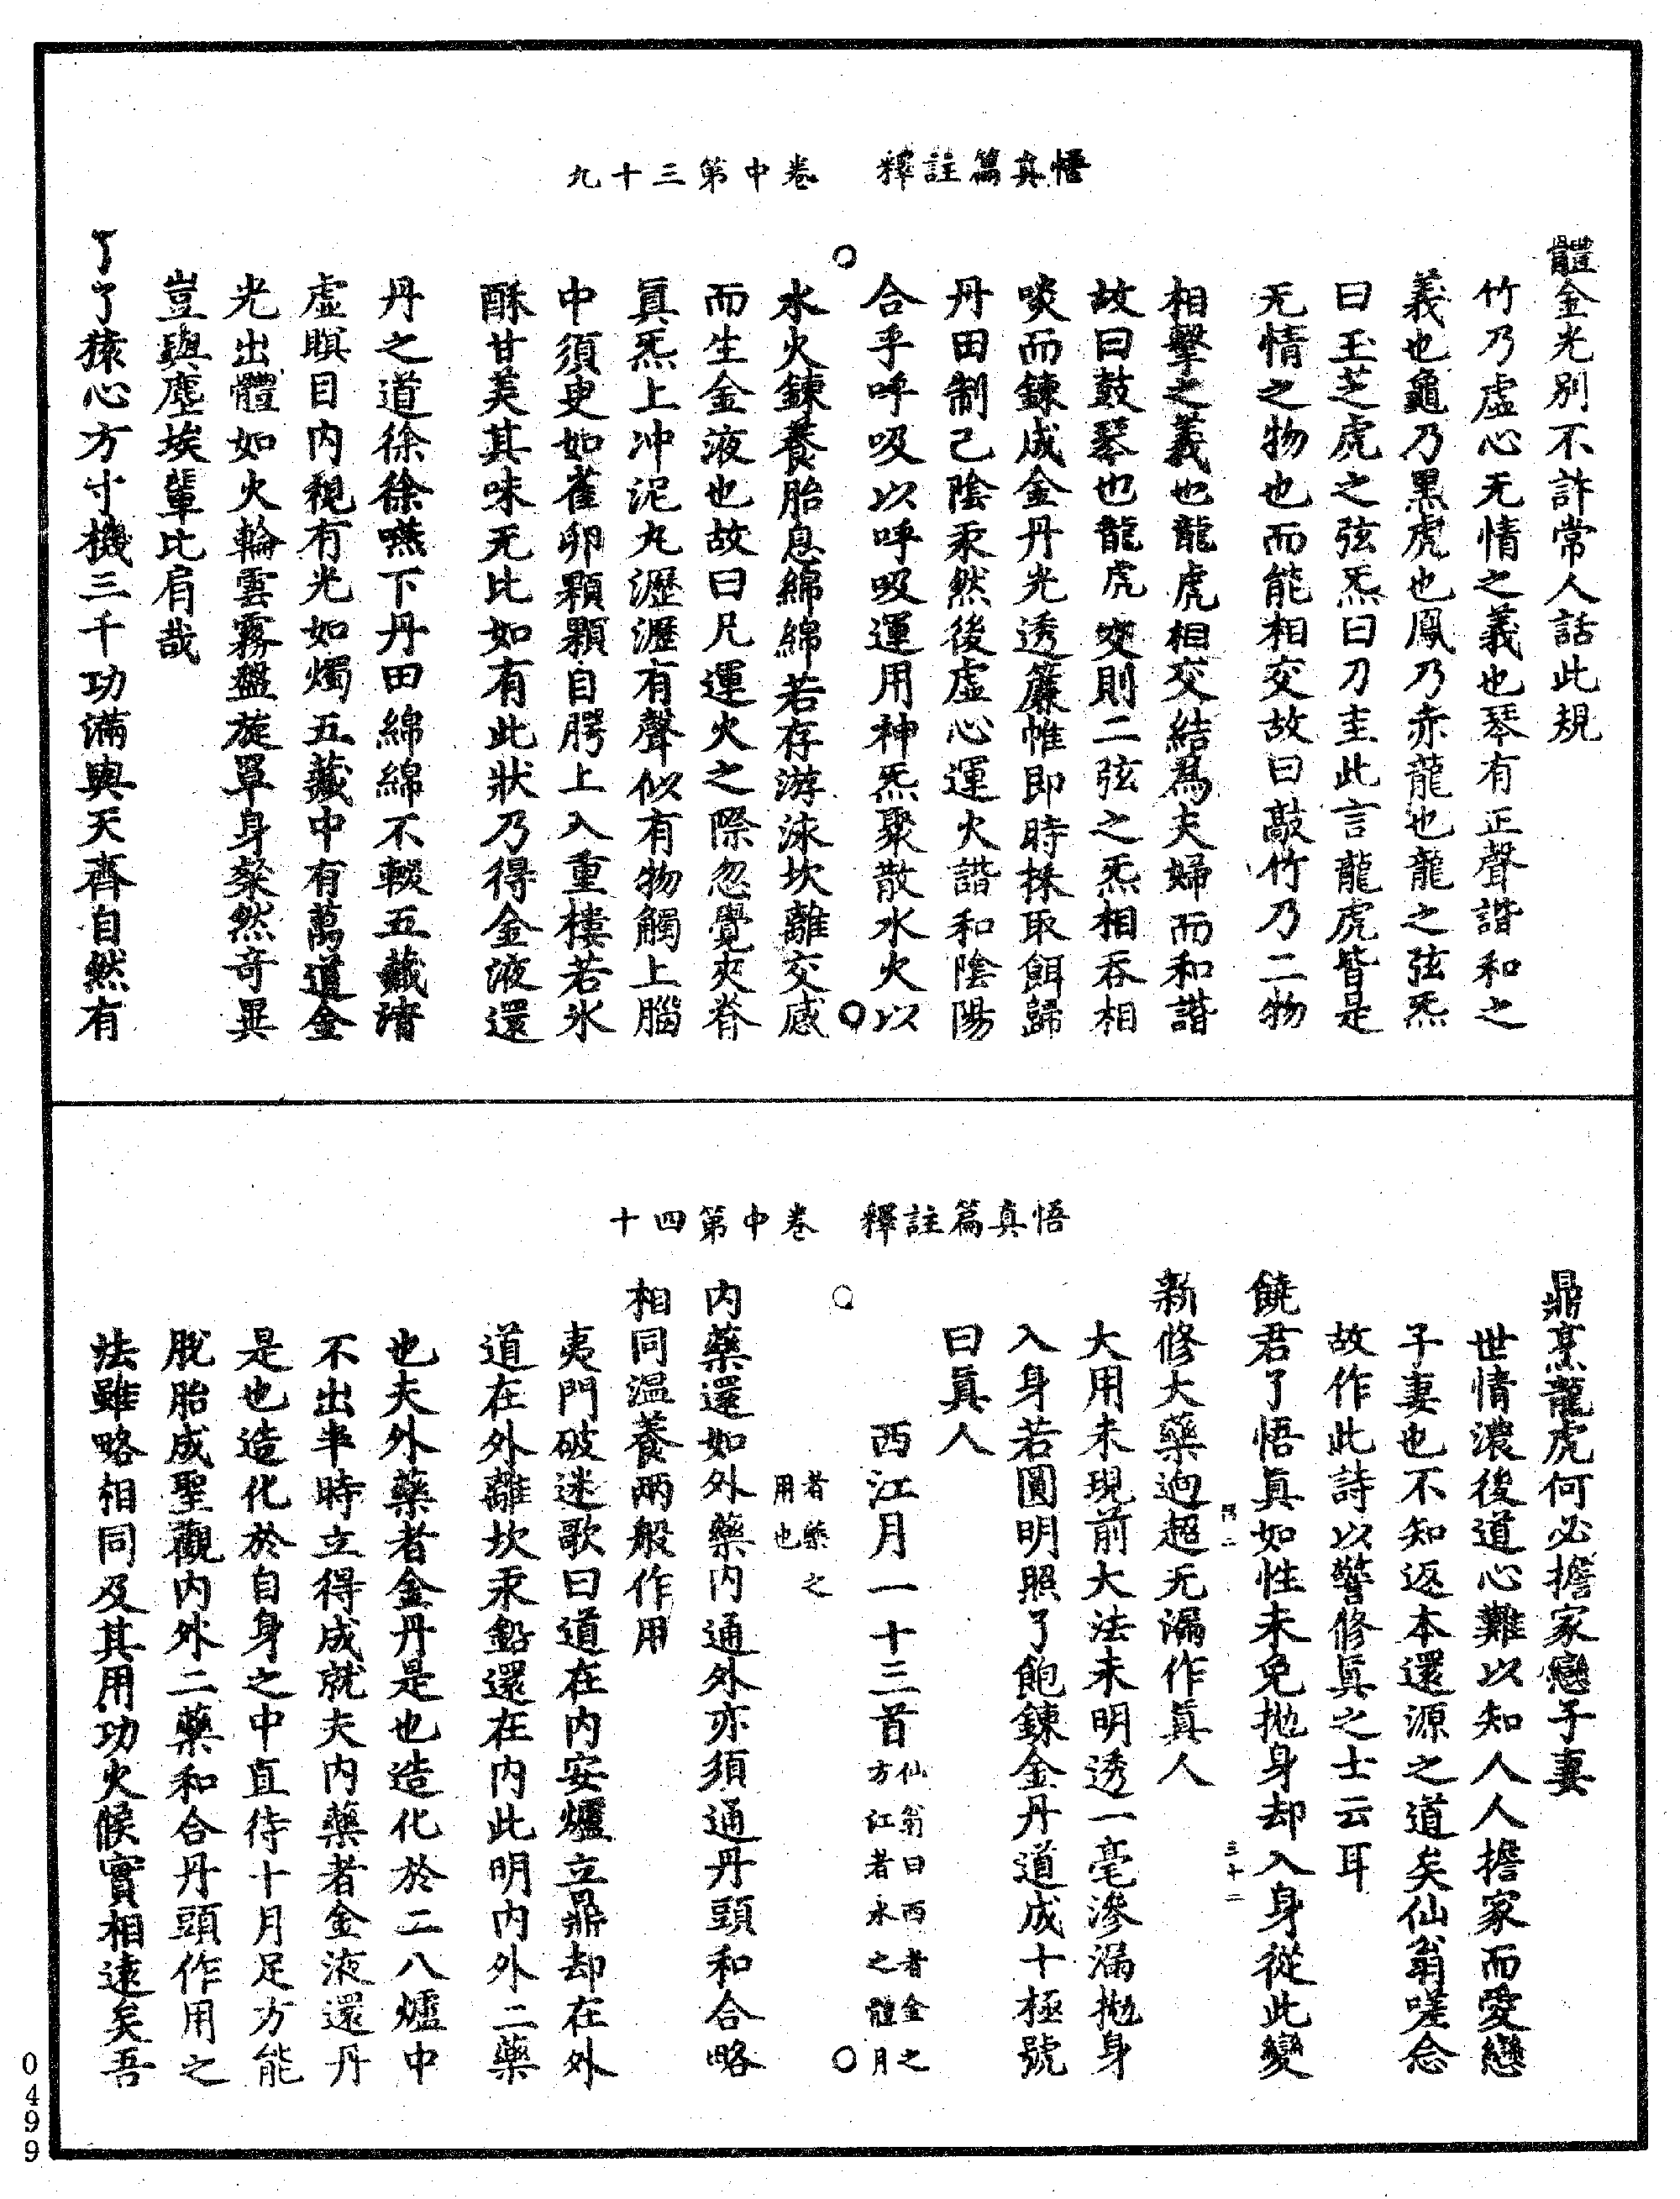 悟真篇註釋　卷中第三十九
體金光別不許常人話此規
竹乃虛心无情之義也琴有正聲諧和之
義也龜乃黑虎也鳳乃赤龍也龍之弦炁
曰玉芝虎之弦炁曰刀圭此言龍虎皆是
无情之物也而能相交故曰敲竹乃二物
相擊之義也龍虎相交結為夫婦而和諧
故曰鼓琴也龍虎交則二弦之炁相吞相
啖而鍊成金丹光透簾帷即時採取餌歸
丹田制己陰汞然後虛心運火諧和陰陽
合乎呼吸以呼吸運用神炁聚散水火以
水火鍊養胎息綿綿若存游泳坎離交感
而生金液也故曰凡運火之際忽覺夾脊
真炁上冲泥丸瀝瀝有聲似有物觸上腦
中須臾如雀卵顆顆自腭上入重樓若氷
酥甘美其味无比如有此狀乃得金液還
丹之道徐徐嚥下丹田綿綿不輟五藏清
虛瞑目內視有光如燭五藏中有萬道金
光出體如火輪雲霧盤旋罩身粲然奇異
豈與塵埃輩比肩哉
了了猿心方寸機三千功滿與天齊自然有
悟真篇註釋　卷中第四十
鼎烹龍虎何必擔家戀子妻
世情濃後道心難以知人人擔家而愛戀
子妻也不知返本還源之道矣仙翁嗟念
故作此詩以警修真之士云耳
饒君了悟真如性未免拋身却入身從此變
三十二
新修大藥逈超无漏作真人
大用未現前大法未明透一毫滲漏拋身
入身若圓明照了飽鍊金丹道成十極號
曰真人
西江月一十三首仙翁曰西者金之方江者水之體月
者藥之用也
內藥還如外藥內通外亦須通丹頭和合略
相同溫養兩般作用
夷門破迷歌曰道在內安爐立鼎却在外
道在外離坎汞鉛還在內此明內外二藥
也夫外藥者金丹是也造化於二八爐中
不出半時立得成就夫內藥者金液還丹
是也造化於自身之中直待十月足方能
脫胎成聖觀內外二藥和合丹頭作用之
法雖略相同及其用功火候實相遠矣吾
0499